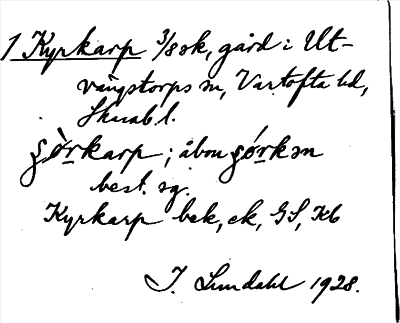 1 Kyrkarp 3/8 sk, gård i Ut-
vängstorps sn, Vartofta hd,
Skarab. l.
çò̀rkarp; åbon çórkən
best. sg.
Kyrkarp bek, ek, GS, Kb
J. Lundahl 1928.